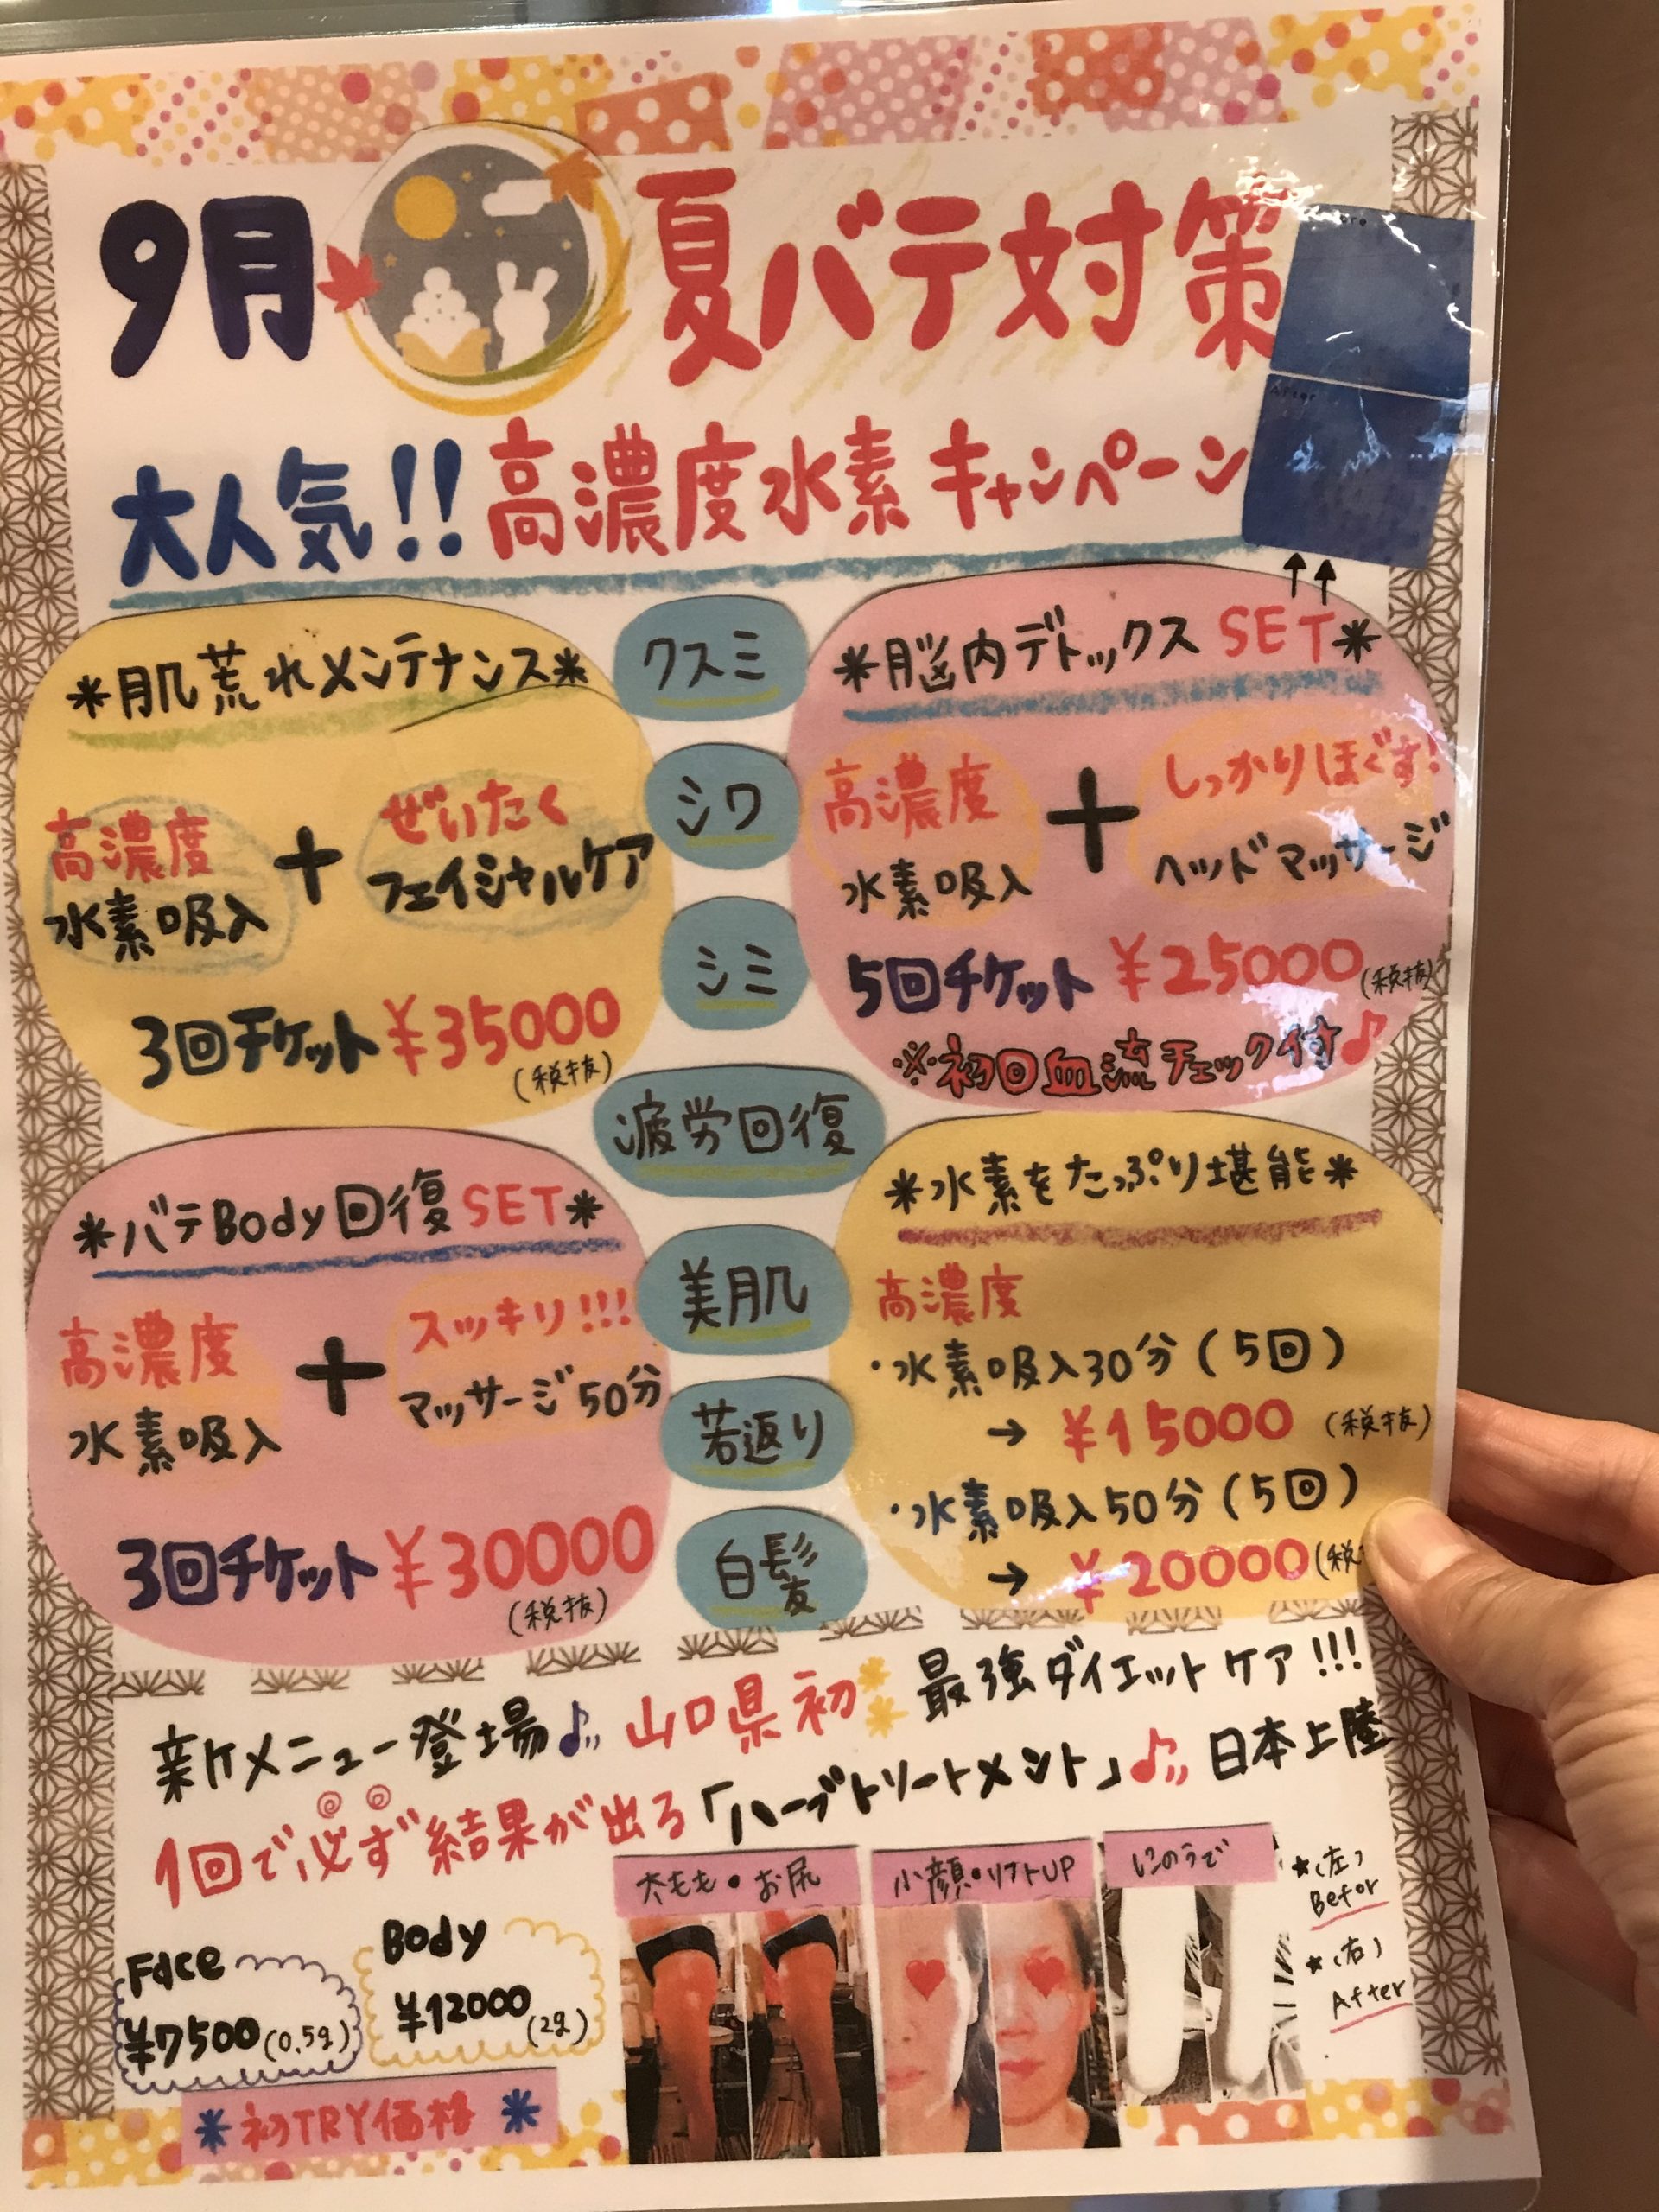 9月 夏バテ対策
大人気!! 高濃度水素キャンペーン
After
*肌荒れメンテナンス*
高濃度
水素吸入
+
ぜいたく
フェイシャルケア
3回チケット ¥35000
(税抜)
クスミ
シワ
シミ
疲労回復
美肌
若返り
白髪
*脳内デトックス SET*
高濃度
水素吸入
+
しっかりほぐす!
ヘッドマッサージ
5回チケット ¥25000(税抜)
※初回血流チェック付♪
*バテBody回復SET*
高濃度
水素吸入
+
スッキリ!!!
マッサージ50分
3回チケット ¥30000
(税抜)
*水素をたっぷり堪能*
高濃度
・水素吸入30分(5回)
→ ¥15000 (税抜)
・水素吸入50分(5回)
→ ¥20000(税
新メニュー登場♪ 山口県初 最強ダイエットケア!!!
1回で必ず結果が出る「ハーブトリートメント」♪ 日本上陸
Face
¥7500(0.5g)
Body
¥12000(2g)
*初TRY価格*
太もも・お尻
小顔・リフトUP
にのうで
★(左)
Befor
★(右)
After